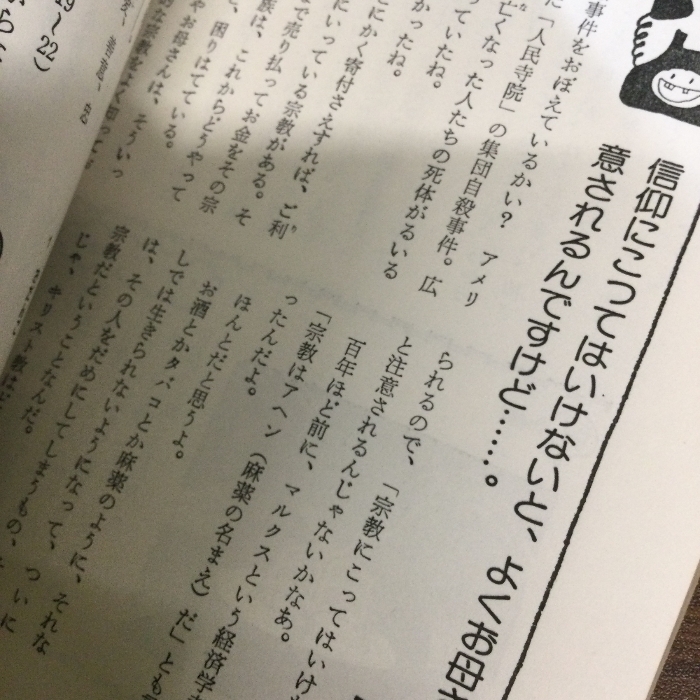 信仰にこってはいけないと、よくお母
意されるんですけど……。
事件をおぼえているかい？ アメリ
「人民寺院」の集団自殺事件。広
亡くなった人たちの死体がるいる
っていたね。
かったね。
にかく寄付さえすれば、ご利
にいっている宗教がある。そ
で売り払ってお金をその宗
族は、これからどうやって
、困りはてている。
やお母さんは、そういっ
な宗教をよく知って
られるので、「宗教にこってはいけ
と注意されるんじゃないかなあ。
百年ほど前に、マルクスという経済学
「宗教はアヘン（麻薬の名まえ）だ」とも
ったんだよ。
ほんとだと思うよ。
お酒とかタバコとか麻薬のように、それな
しでは生きられないようになって、ついに
は、その人をだめにしてしまうもの、
宗教だということなんだ。
じゃ、キリスト教は
19～22）